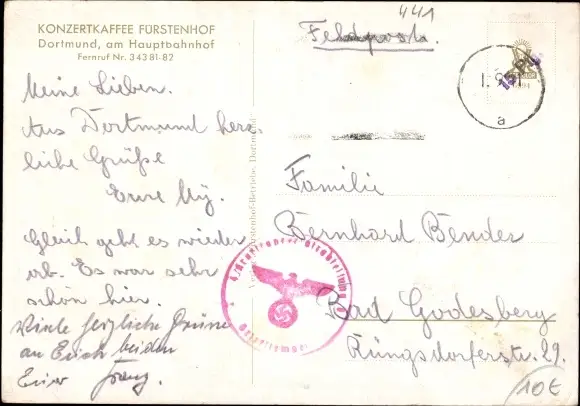 441
KONZERTKAFFEE FÜRSTENHOF
Dortmund, am Hauptbahnhof
Fernruf Nr. 343 81-82
Feldpost.
Meine Lieben.
Aus Dortmund herz-
liche Grüße
Eure
Gleich geht es wieder
ab. Es war sehr
schön hier.
Viele herzliche Grüsse
an Euch beiden
Euer Franz.
Familie
Bernhard Bender
Bad Godesberg
Rüngsdorferstr. 29.
a
10€